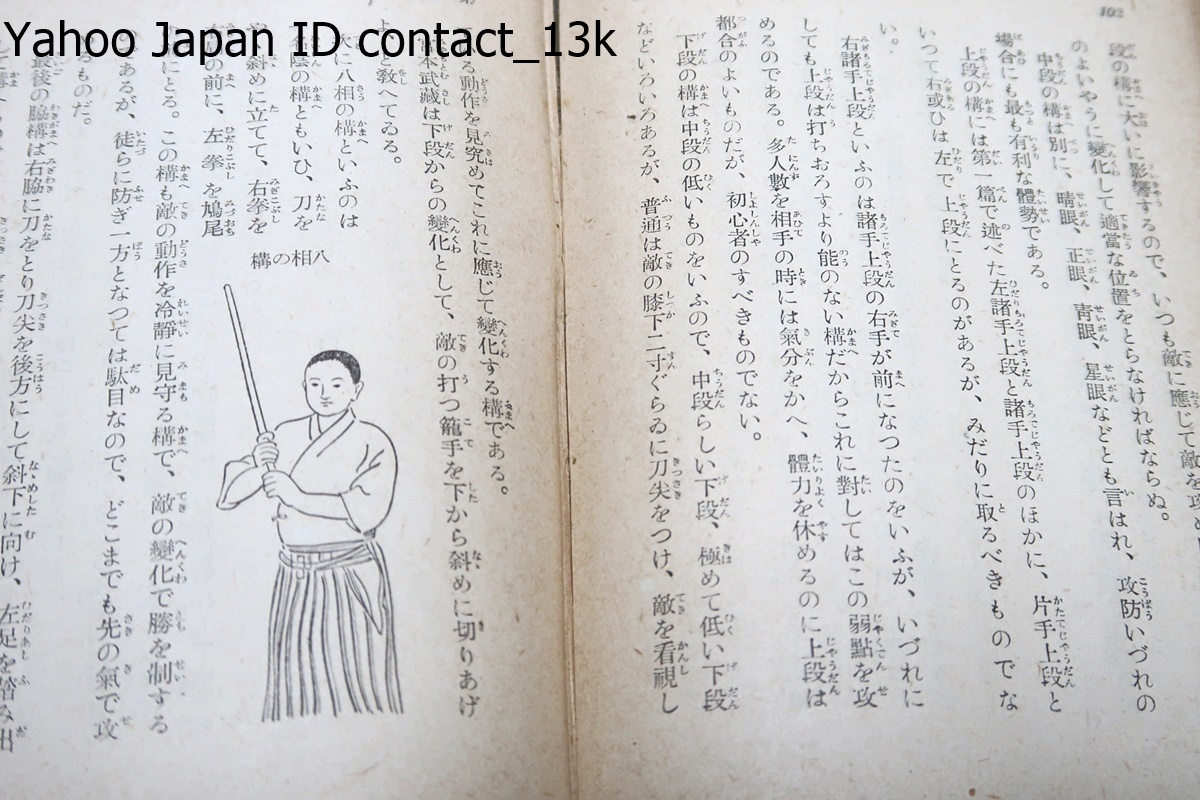 Yahoo Japan ID contact_13k
102
段の構に大いに影響するので、いつも敵に應じて敵を攻
のよいやうに變化して適當な位置をとらなければならぬ。
中段の構は別に、晴眼、正眼、靑眼、星眼などとも言はれ、攻防いづれの
場合にも最も有利な體勢である。
上段の構には第一篇で述べた左諸手上段と諸手上段のほかに、片手上段と
いつて右或ひは左で上段にとるのがあるが、みだりに取るべきものでな
い。
右諸手上段といふのは諸手上段の右手が前になつたのをいふが、いづれに
しても上段は打ちおろすより能のない構だからこれに對してはこの弱點を攻
めるのである。多人數を相手の時には氣分をかへ、體力を休めるのに上段は
都合のよいものだが、初心者のすべきものでない。
下段の構は中段の低いものをいふので、中段らしい下段、極めて低い下段
などいろいろあるが、普通は敵の膝下二寸ぐらゐに刀尖をつけ、敵を看視し
る動作を見究めてこれに應じて變化する構である。
宮本武藏は下段からの變化として、敵の打つ籠手を下から斜めに切りあげ
よと敎へてゐる。
次に八相の構といふのは
陰の構ともいひ、刀を
や、斜めに立てて、右拳を
の前に、左拳を鳩尾
にとる。この構も敵の動作を冷靜に見守る構で、敵の變化で勝を制する
であるが、徒らに防ぎ一方となつては駄目なので、どこまでも先の氣で攻
るものだ。
最後の脇構は右脇に刀をとり刀尖を後方にして斜下に向け、左足を踏み出
八相の構